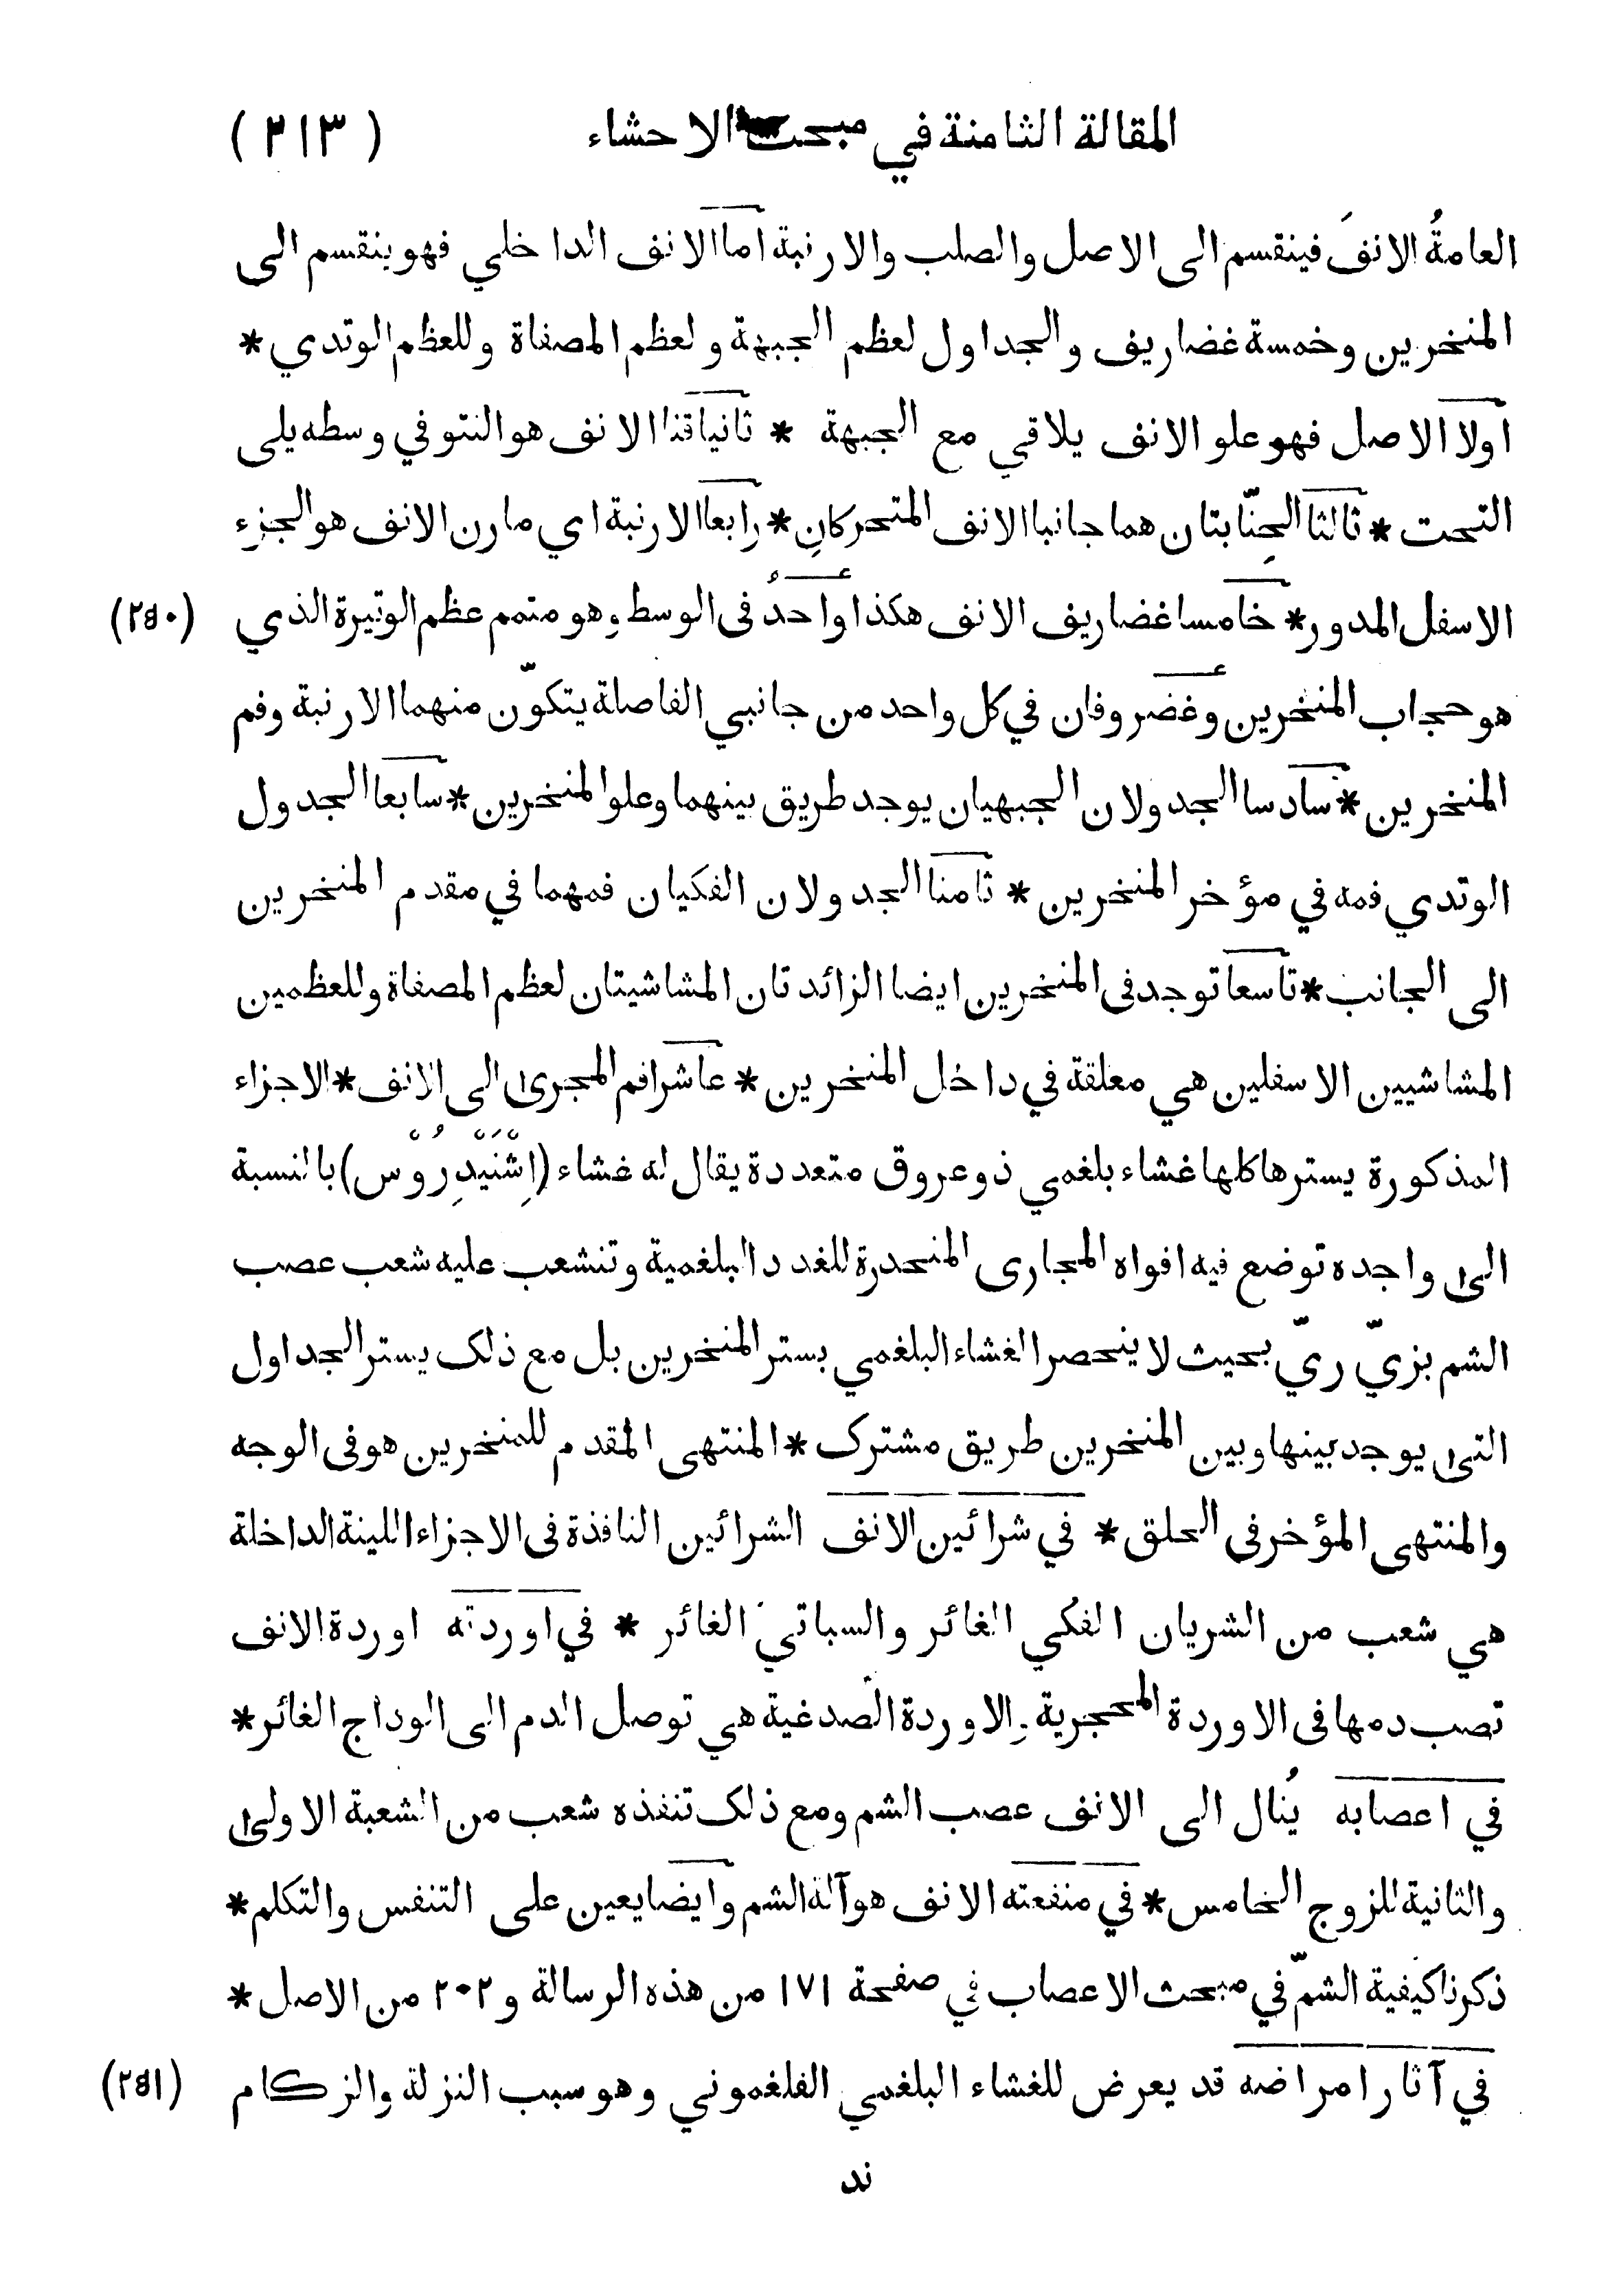 المقالة الثامنة في مبحث الاحشاء (٢١٣)
العامةُ الانفَ فينقسم الى الاصل والصلب والارنبة اما الانف الداخلي فهو ينقسم الى
المنخرين وخمسة غضاريف والجداول لعظم الجبهة ولعظم المصفاة وللعظم الوتدي *
اولا الاصل فهو علو الانف يلاقي مع الجبهة * ثانيا قنا الانف هو النتو في وسطه يلى
التحت * ثالثا الحِنّابتان هما جانبا الانف المتحركانِ * رابعا الارنبة اي مارن الانف هو الجزء
الاسفل المدور * خامسا غضاريف الانف هكذا واحدُ فى الوسط وهو متمم عظم الوتيرة الذي (٢٤٠)
هو حجاب المنخرين وغضروفان في كل واحد من جانبي الفاصلة يتكوّن منهما الارنبة وفم
المنخرين * سادسا الجدولان الجبهيان يوجد طريق بينهما وعلو المنخرين * سابعا الجدول
الوتدي فمه في مؤخر المنخرين * ثامنا الجدولان الفكيان فمهما في مقدم المنخرين
الى الجانب * تاسعا توجد فى المنخرين ايضا الزائدتان المشاشيتان لعظم المصفاة وللعظمين
المشاشيين الاسفلين هي معلقة في داخل المنخرين * عاشرا فم المجرى الى الانف * الاجزاء
المذكورة يسترها كلها غشاء بلغمي ذو عروق متعددة يقال له غشاء (اِشْنَيْدِرُوْس) بالنسبة
الى واجده توضع فيه افواه المجارى المنحدرة للغدد البلغمية وتنشعب عليه شعب عصب
الشم بزيّ ريّ بحيث لا ينحصر الغشاء البلغمي بستر المنخرين بل مع ذلك يستر الجداول
التى يوجد بينها وبين المنخرين طريق مشترك * المنتهى المقدم للمنخرين هو فى الوجه
والمنتهى المؤخر فى الحلق * في شرائين الانف الشرائين النافذة فى الاجزاء اللينة الداخلة
هي شعب من الشريان الفكي الغائر والسباتي الغائر * في اوردته اوردة الانف
تصب دمها فى الاوردة المحجرية والاوردة الصدغية هي توصل الدم الى الوداج الغائر *
في اعصابه يُنال الى الانف عصب الشم ومع ذلك تنفذه شعب من الشعبة الاولى
والثانية للزوج الخامس * في منفعته الانف هو آلة الشم وايضا يعين على التنفس والتكلم *
ذكرنا كيفية الشمّ في مبحث الاعصاب في صفحة ١٧١ من هذه الرسالة و ٢٠٢ من الاصل *
في آثار امراضه قد يعرض للغشاء البلغمي الفلغموني وهو سبب النزلة والزكام (٢٤١)
ند